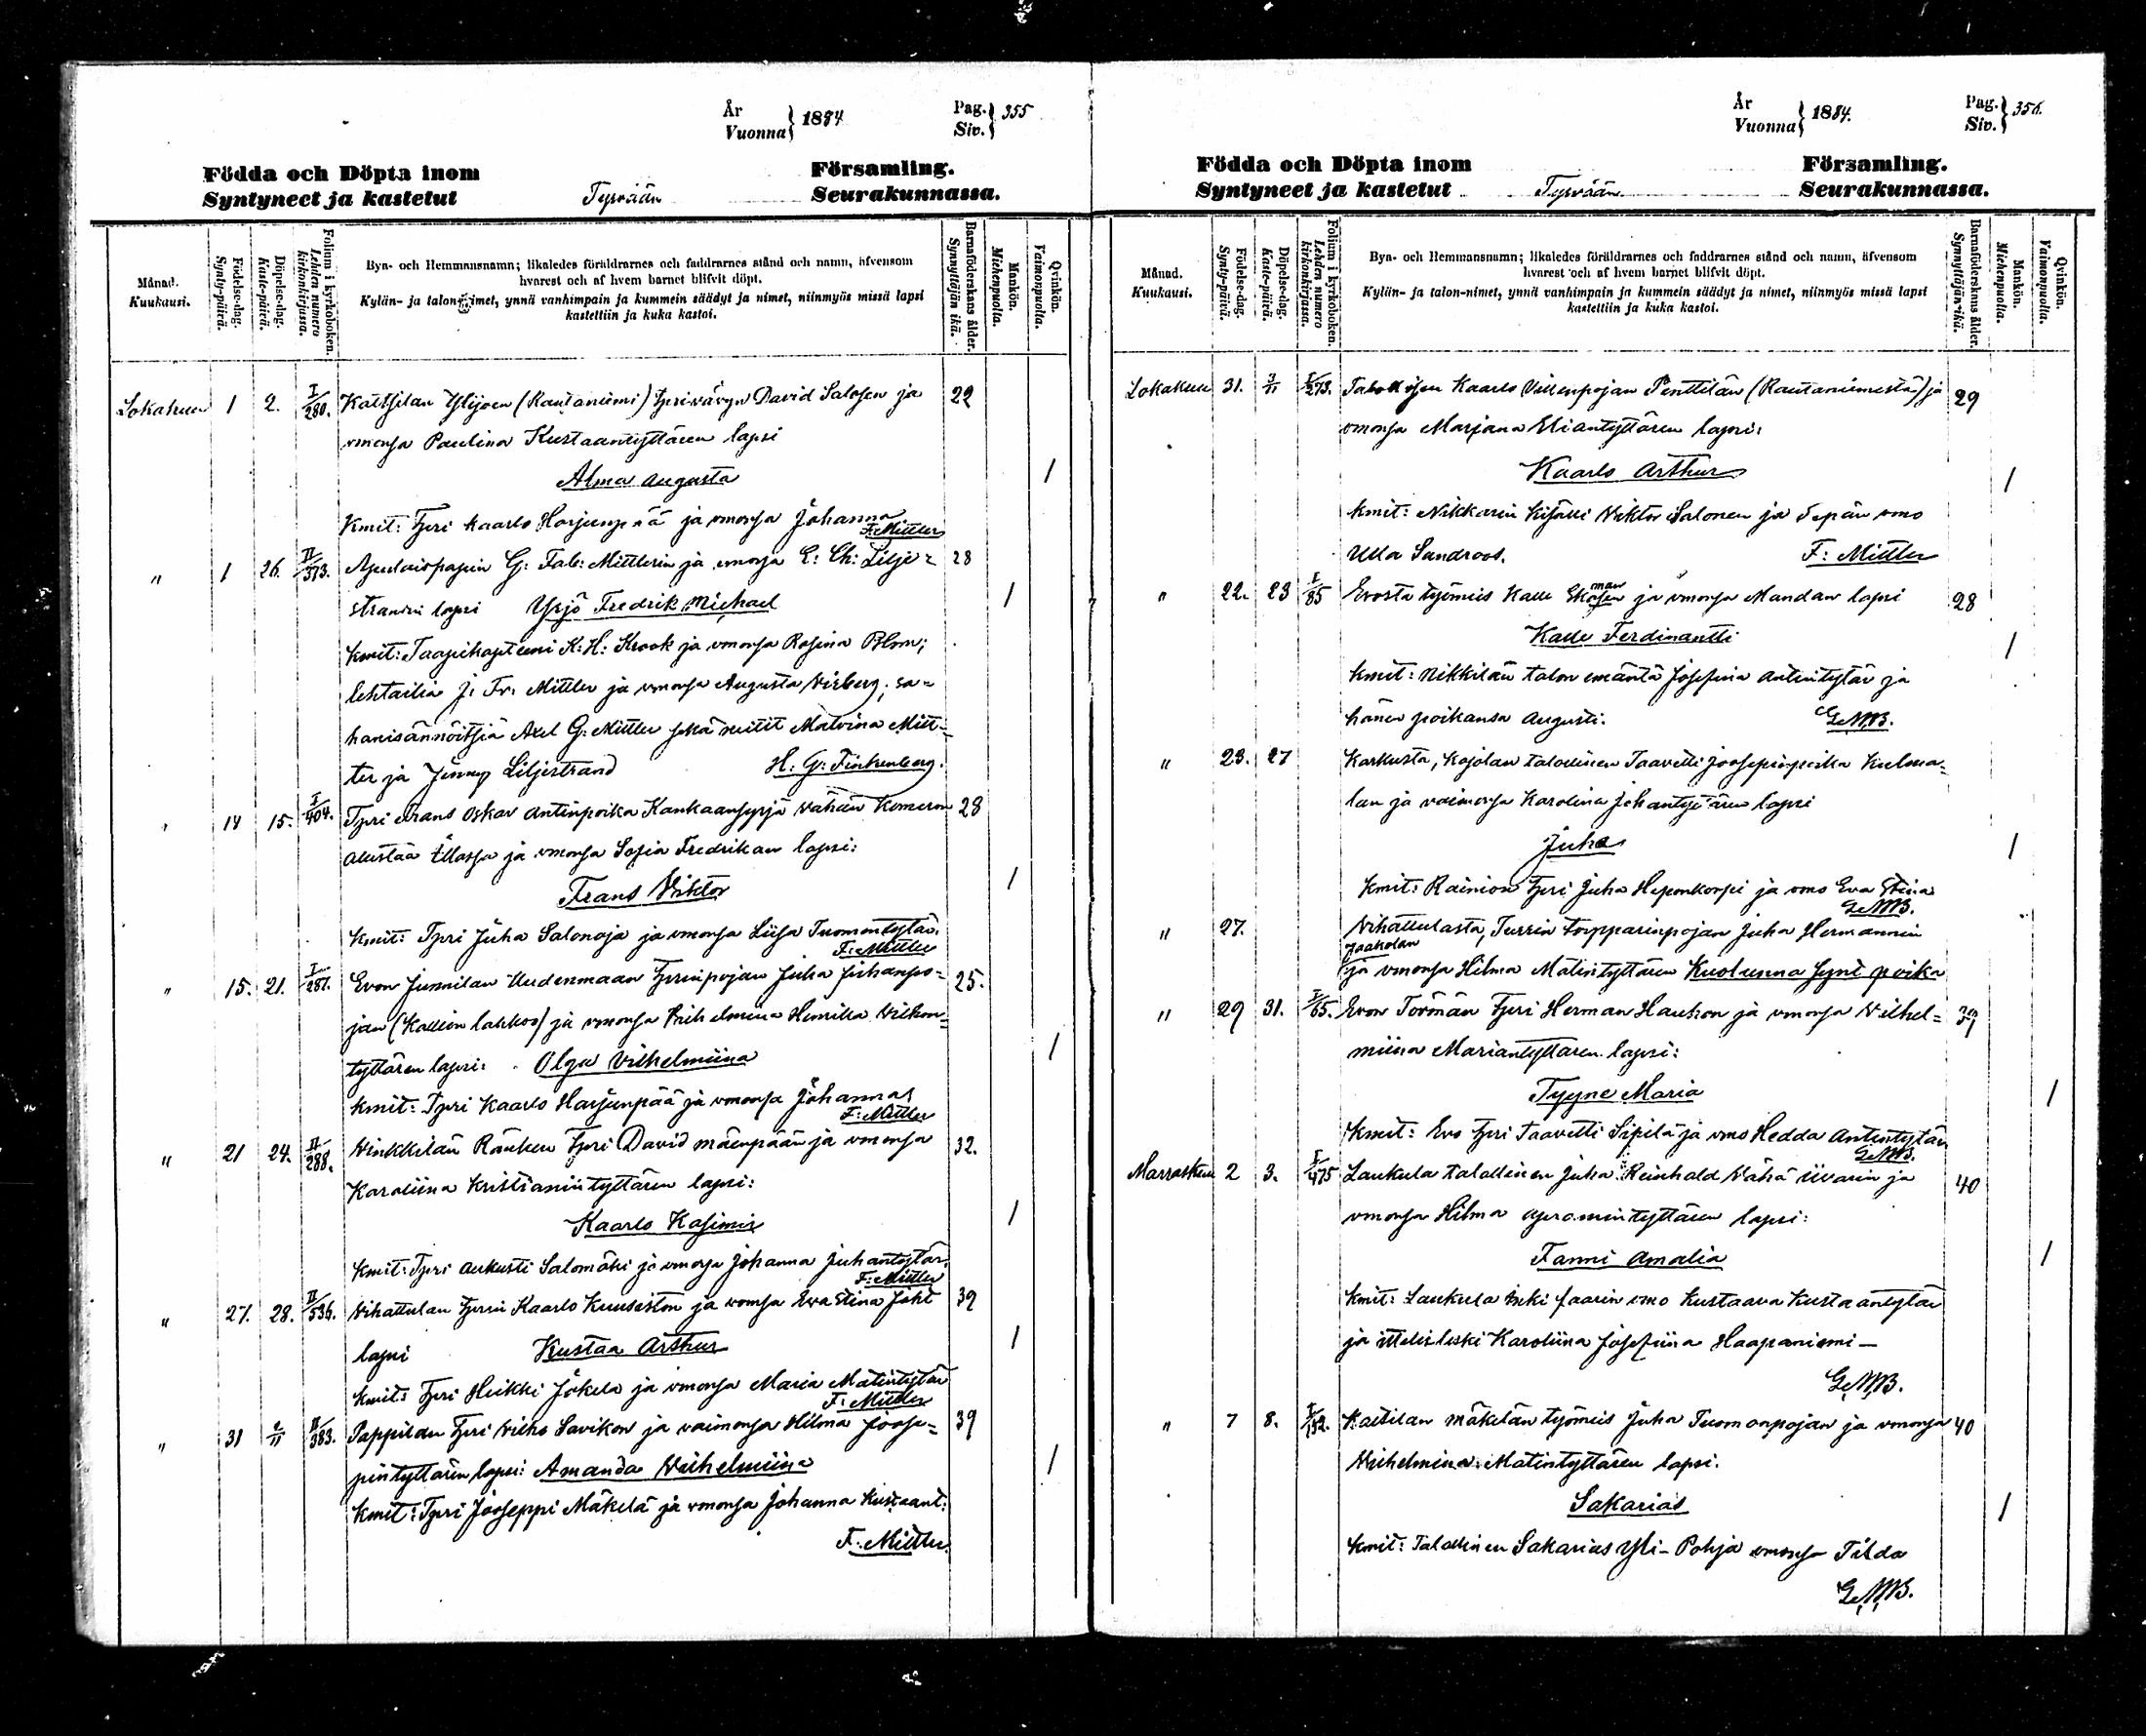 År
Vuonna } 1884
Pag.
Siv. } 355
Födda och Döpta inom Församling.
Syntyneet ja kastetut Tyrvään Seurakunnassa.
Månad.
Kuukausi.
Födelse-dag.
Synty-päivä.
Döpelse-dag.
Kaste-päivä.
Folium i kyrkoboken.
Lehden numero kirkonkirjassa.
Bya- och Hemmansnamn; likaledes föräldrarnes och faddrarnes stånd och namn, äfvensom
hvarest och af hvem barnet blifvit döpt.
Kylän- ja talon-nimet, ynnä vanhimpain ja kummein säädyt ja nimet, niinmyös missä lapsi
kastettiin ja kuka kastoi.
Barnaföderskans ålder.
Synnyttäjän ikä.
Mankön.
Miehenpuolta.
Qvinkön.
Vaimonpuolta.
Lokakuu 1 2. I/280. (Rautaniemi) David Salosen ja 22
vmonsa Paulina Kustaantyttären lapsi
Alma Augusta 1
Kmit: Tpri Kaarlo Harjunpää ja vmonsa Johanna
F: Mittler
" 1 26. II/373. Apulaispapin G: Fab: Mittlerin ja vmonsa E: Ch: Lilje= 28
strandin lapsi Yrjö Fredrik Michael 1
Kmit: K: H: Krook ja vmonsa Rosina Blom;
lehtailia J: Fr: Mittler ja vmonsa Augusta Wirberg; sa=
hanisännöitsiä Axel G: Mittler sekä neitit Matvina Mitt=
ler ja Jenny Liljestrand H: G: Finkenberg.
" 14 15. I/404. Tpri Frans Oskar Antinpoika Kankaansyrjä Vähän 28
ja vmonsa Sofia Fredrikan lapsi:
Frans Viktor 1
Kmit: Tpri Juha Salonoja ja vmonsa Liisa Tuomontytär.
F: Mittler
" 15. 21. I/281. Evon Junnilan Uudenmaan Tprinpojan Juha Juhanpo= 25.
jan (Kallion lahkoo) ja vmonsa Vilhelmina Henrika
tyttären lapsi: Olga Vilhelmiina 1
Kmit: Tpri Kaarlo Harjunpää ja vmonsa Johanna
F: Mittler
" 21 24. II/288. Vinkkilän Räuhen Tpri David Mäenpään ja vmonsa 32.
Karoliina Kristianintyttären lapsi:
Kaarlo Kasimir 1
Kmit: Tpri Aukusti Salomäki ja vmonsa Johanna Juhantytär.
F: Mittler
" 27. 28. II/536. Vihattulan Tprin Kaarlo Kuusiston ja vmonsa Eva Stina Joht 39
lapsi Kustaa Arthur 1
Kmit: Tpri Heikki Jokela ja vmonsa Maria Matintytär
F: Mittler
" 31 2/11 II/383. Pappilan Tpri Vilho Savikon ja vaimonsa Hilma Joose= 39
pintyttären lapsi: Amanda Vilhelmiina 1
Kmit: Tpri Jooseppi Mäkelä ja vmonsa Johanna Kustaant:
F: Mittler
År
Vuonna } 1884.
Pag.
Siv. } 356.
Födda och Döpta inom Församling.
Syntyneet ja kastetut Tyrvään Seurakunnassa.
Månad.
Kuukausi.
Födelse-dag.
Synty-päivä.
Döpelse-dag.
Kaste-päivä.
Folium i kyrkoboken.
Lehden numero kirkonkirjassa.
Bya- och Hemmansnamn; likaledes föräldrarnes och faddrarnes stånd och namn, äfvensom
hvarest och af hvem barnet blifvit döpt.
Kylän- ja talon-nimet, ynnä vanhimpain ja kummein säädyt ja nimet, niinmyös missä lapsi
kastettiin ja kuka kastoi.
Barnaföderskans ålder.
Synnyttäjän ikä.
Mankön.
Miehenpuolta.
Qvinkön.
Vaimonpuolta.
Lokakuu 31. 3/11 I/273. Kaarlo Villenpojan Penttilän (Rautaniemestä) ja 29
vmonsa Marjana Eliantyttären lapsi:
Kaarlo Arthur 1
Kmit: Nikkarin kisälli Viktor Salonen ja Sepän vmo
Ulla Sandroos. F: Mittler
" 22. 23 I/85 Evosta työmies Kalle Ekman ja vmonsa Mandan lapsi 28
Kalle Ferdinantti 1
Kmit: Nikkilän talon emäntä Josefina Antintytär ja
hänen poikansa Augusti. G.M.B.
" 23. 27 Karkusta, Kojolan talollinen Taavetti Joosepinpoika Kulma=
lan ja vaimonsa Karolina Juhantyttären lapsi
Juha 1
Kmit: Rainion Tpri Juha Heponkorpi ja vmo Eva Stina
G.M.B.
" 27. Vihattulasta, Turrin torpparinpojan Juha Hermannin
Jaakolan
ja vmonsa Hilma Matintyttären Kuolunna synt poika
" 29 31. I/65. Evon Törmän Tpri Herman Haukon ja vmonsa Vilhel=
miina Mariantyttären lapsi:
Tyyne Maria 1
Kmit: Evo Tpri Taavetti Sipilä ja vmo Hedda Antintytär
G.M.B.
Marraskuu 2 3. I/475 Laukula talollinen Juha Reinhold Vähä Iivarin ja 40
vmonsa Hilma tyttären lapsi:
Fanni Amalia 1
Kmit: Laukula vmo Kustaava Kustaantytär
ja ittelisleski Karoliina Josefiina Haapaniemi —
G.M.B.
" 7 8. I/132. Kaltilan Mäkelän työmies Juha Tuomonpojan ja vmonsa 40
Vilhelmina Matintyttären lapsi.
Sakarias 1
Kmit: Talollinen Sakarias Yli-Pohja vmonsa Tilda
G.M.B.